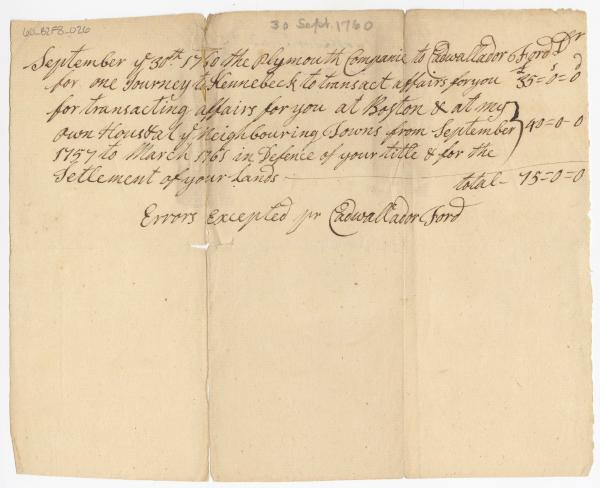 60_B2F8_026
30 Sept. 1760
September ye 30th 1760 the Plymouth Companie to Cadwallador Ford Dr
for one Journey to Kennebeck to transact affairs for you 35=0=0
for transacting affairs for you at Boston & at my
own House & at ye Neighbouring Towns from September 40=0=0
1757 to March 1761 in Defence of your title & for the
Setlement of your Lands
total- 75=0=0
Errors Excepted pr Cadwallador Ford